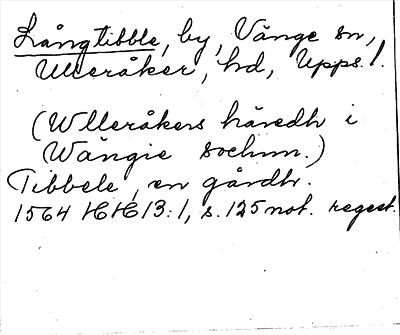 Långtibble, by, Vänge sn,
Ulleråker, hd, Upps. l.
(Wlleråkers häredh i
Wängie sochnn.)
Tibbele, en gårdh.
1564 HH 13:1, s. 125 not. regest.